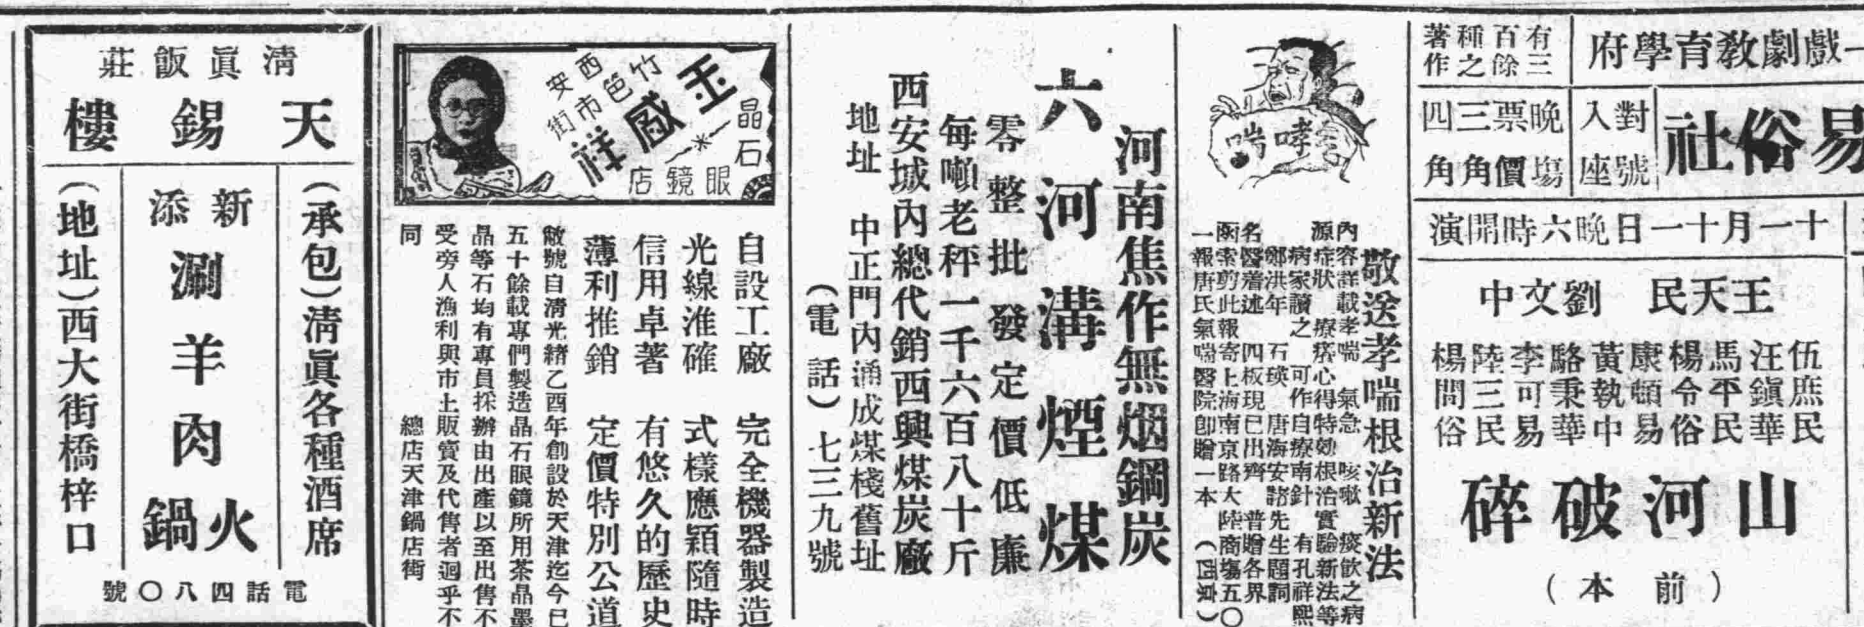 一戲劇教育學府
有三百餘種之著作
易俗社
對號入座
晚場票價三角四角
十一月十一日晚六時開演
王天民 劉文中
伍庶民
汪鎭華
馬平民
楊令俗
康頓易
黃執中
駱秉華
李可易
陸三民
楊問俗
山河破碎
(前本)
哮喘
敬送孝喘根治新法
內容詳載孝喘 氣急 咳嗽 痰飲之病
源症狀 療養心得特効根治實驗新法等
病家讀之 可作自療南針 有孔祥熙
鄭洪年 石瑛 唐海安諸先生題詞
名醫著述 四板現已出齊 普贈各界
函索剪此報寄上海南京路大陸商場五〇
一報唐氏氣喘醫院卽贈一本
河南焦作無烟鋼炭
六河溝煙煤
零整批發定價低廉
每噸老秤一千六百八十斤
西安城內總代銷西興煤炭廠
地址 中正門內涌成煤棧舊址
(電話)七三九號
晶石
玉咸祥
眼鏡店
西安竹笆市街
自設工廠 完全機器製造
光線准確 式樣應穎隨時
信用卓著 有悠久的歷史
薄利推銷 定價特別公道
敝號自清光緒乙酉年創設於天津迄今已
五十餘載專們製造晶石眼鏡所用茶晶墨
晶等石均有專員採辦由出產以至出售不
受旁人漁利與市上販賣及代售者迥乎不
同 總店天津鍋店街
淸眞飯莊
天錫樓
(承包)淸眞各種酒席
新添
涮羊肉火鍋
(地址)西大街橋梓口
電話四八〇號